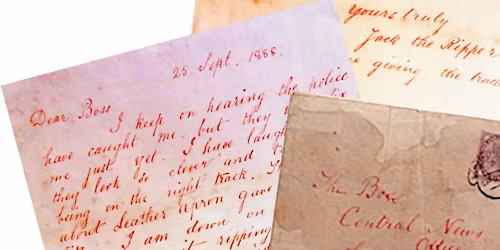 25. Sept. 1888.
Dear Boss
I keep on hearing the police
have caught me but they
me just yet. I have laugh
they look so clever and
being on the right track.
about Leather apron gave
I am down on
ripping
yours truly
Jack the Ripper
giving the trade
The Boss
Central News